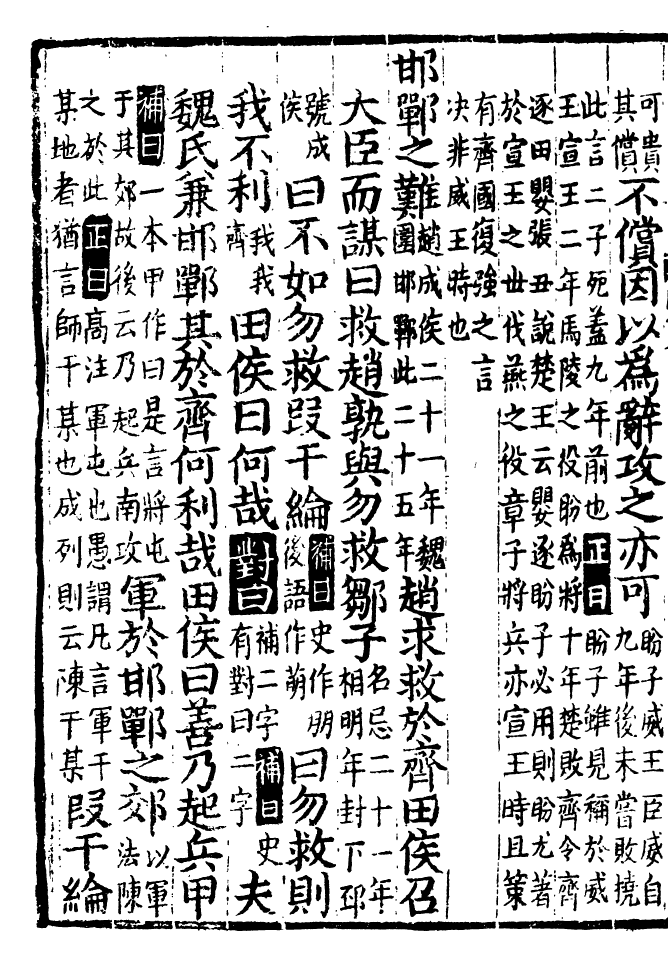 可貴
其償
不償因以為辭攻之亦可
盼子威王臣威自
九年後未嘗敗撓
此言二子死蓋九年前也正曰盼子雖見稱於威
王宣王二年馬陵之役盼為將十年楚敗齊令齊
逐田嬰張丑說楚王云嬰逐盼子必用則盼尤著
於宣王之世伐燕之役章子將兵亦宣王時且策
有齊國復強之言
決非威王時也
邯鄲之難
趙成侯二十一年魏
圍邯鄲此二十五年
趙求救於齊田侯召
大臣而謀曰救趙孰與勿救鄒子
名忌二十一年
相明年封下邳
號成
侯
曰不如勿救段干綸
補曰史作朋
後語作萠
曰勿救則
我不利
我我
齊
田侯曰何哉對曰
補二字補曰史
有對曰二字
夫
魏氏兼邯鄲其於齊何利哉田侯曰善乃起兵甲
補曰一本甲作曰是言將屯
于其郊故後云乃起兵南攻
軍於邯鄲之郊
以軍
法陳
之於此正曰高注軍屯也愚謂凡言軍于
某地者猶言師于某也成列則云陳于某
段干綸